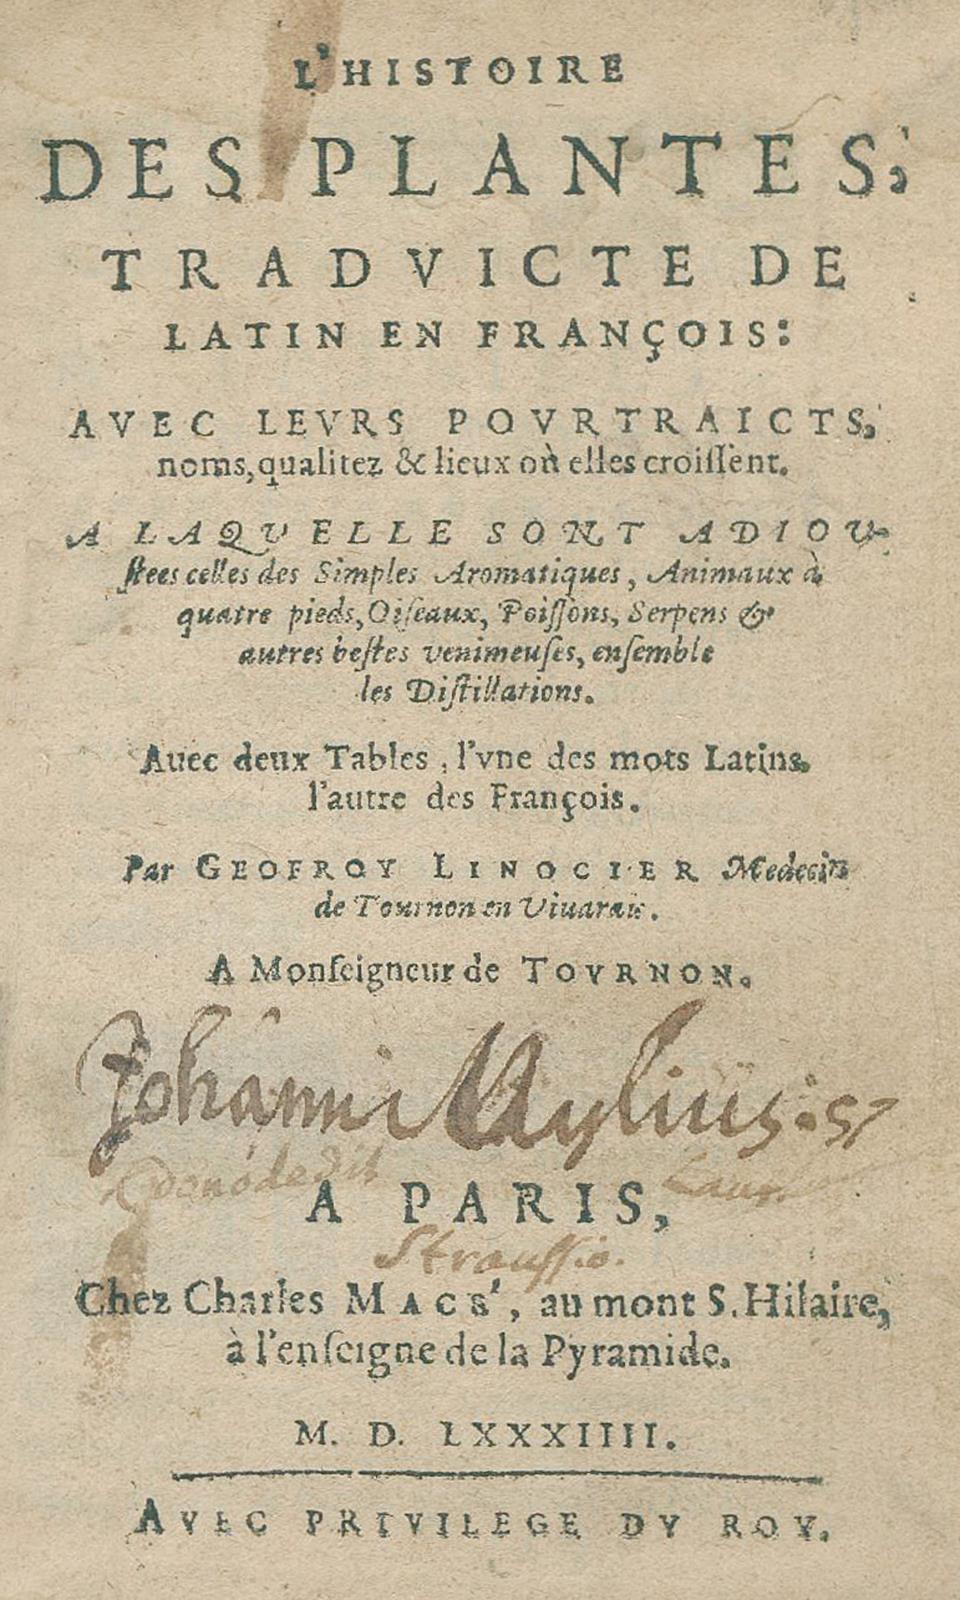 L'HISTOIRE
DES PLANTES,
TRADVICTE DE
LATIN EN FRANÇOIS:
AVEC LEVRS POVRTRAICTS,
noms, qualitez & lieux où elles croiſſent.
A LAQVELLE SONT ADIOV-
ſtees celles des Simples Aromatiques, Animaux à
quatre pieds, Oiſeaux, Poiſſons, Serpens &
autres beſtes venimeuſes, enſemble
les Diſtillations.
Auec deux Tables, l'vne des mots Latins,
l'autre des François.
Par GEOFROY LINOCIER Medecin
de Tournon en Viuarais.
A Monſeigneur de TOVRNON.
Johānni Mylius
dono dedit Laur.
A PARIS,
Straussio.
Chez Charles MACE', au mont S. Hilaire,
à l'enſeigne de la Pyramide.
M. D. LXXXIIII.
AVEC PRIVILEGE DV ROY.